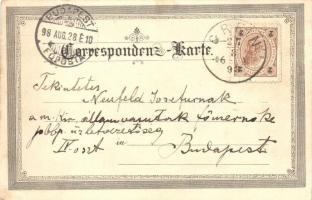 BUDAPEST
98 AUG. 28 É 10
FŐPOSTA
Correspondenz-Karte.
Tekintetes
Neufeld Józsefurnak
a m. kir. államvasutak főmérnöke
jobbp. üzletvezetőség
IV oszt in Budapest